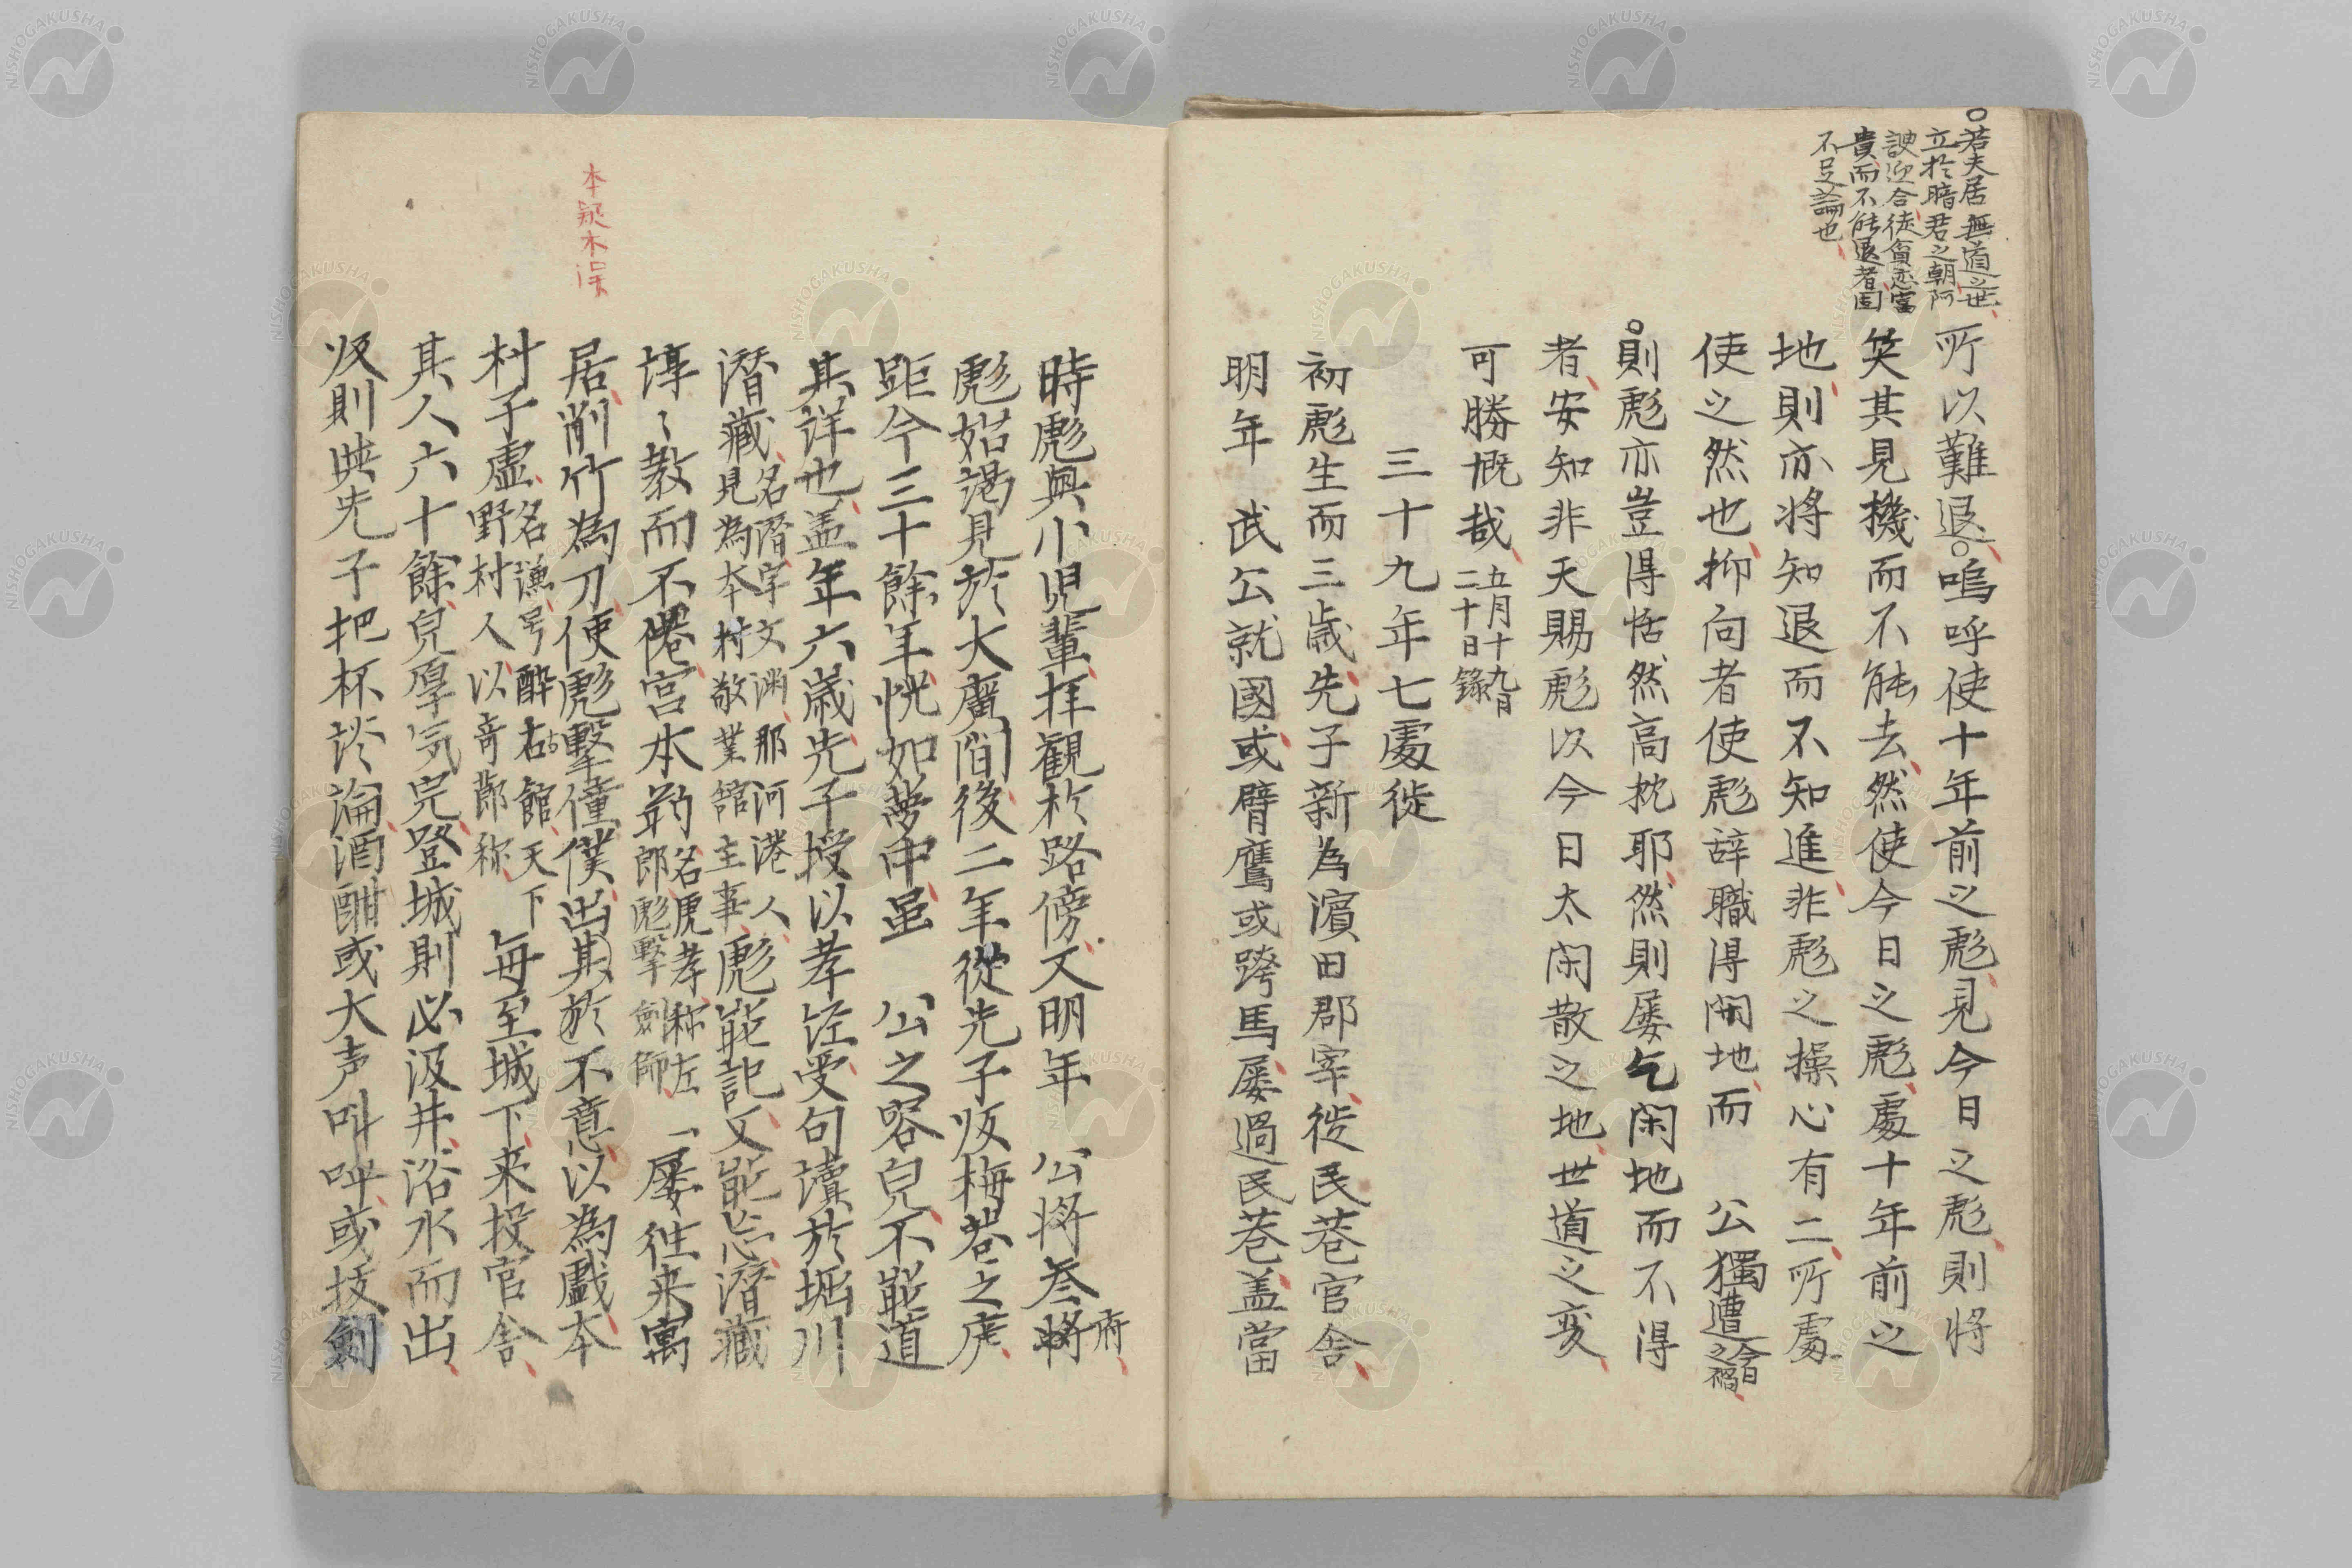 ○若夫居無道之世
立於暗君之朝阿
諛迎合徒貪恋富
貴而不能退者固
不足論也
所以難退○嗚呼使十年前之彪見今日之彪則将
笑其見機而不能去然使今日之彪處十年前之
地則亦将知退而不知進非彪之操心有二所處
使之然也抑向者使彪辞職得閑地而 公獨遭今日之禍
○則彪亦豈得恬然高枕耶然則屡乞閑地而不得
者安知非天賜彪以今日太閑散之地世道之変
可勝慨哉五月十九日
二十日錄
三十九年七處徙
初彪生而三歳先子新為濱田郡宰徙民巷官舎
明年 武公就國或臂鷹或跨馬屡過民巷盖當
時彪與小児輩拝観於路傍又明年 公将参将府
彪始謁見於大廣間後二年從先子皈梅巷之廬
距今三十餘年恍如夢中虽 公之容皃不能道
其詳也盖年六歳先子授以孝経受句讀於堀川
潜藏名潜字文渊那河湊人
見為本村敬業舘主事彪能記又能忘潜藏
惇〻教而不倦宮本羽名虎孝称左
郎彪擊劍師「屡徃来寓
居削竹為刀使彪擊僮僕出其於不意以為戯本
村子虚名謙号酔古右舘天下
野村人以奇節称每至城下来投官舎
其人六十餘皃厚気完登城則必汲井浴水而出
皈則與先子把杯談論酒酣或大声叫呼或技劍
本疑木误
NISHOGAKUSHA